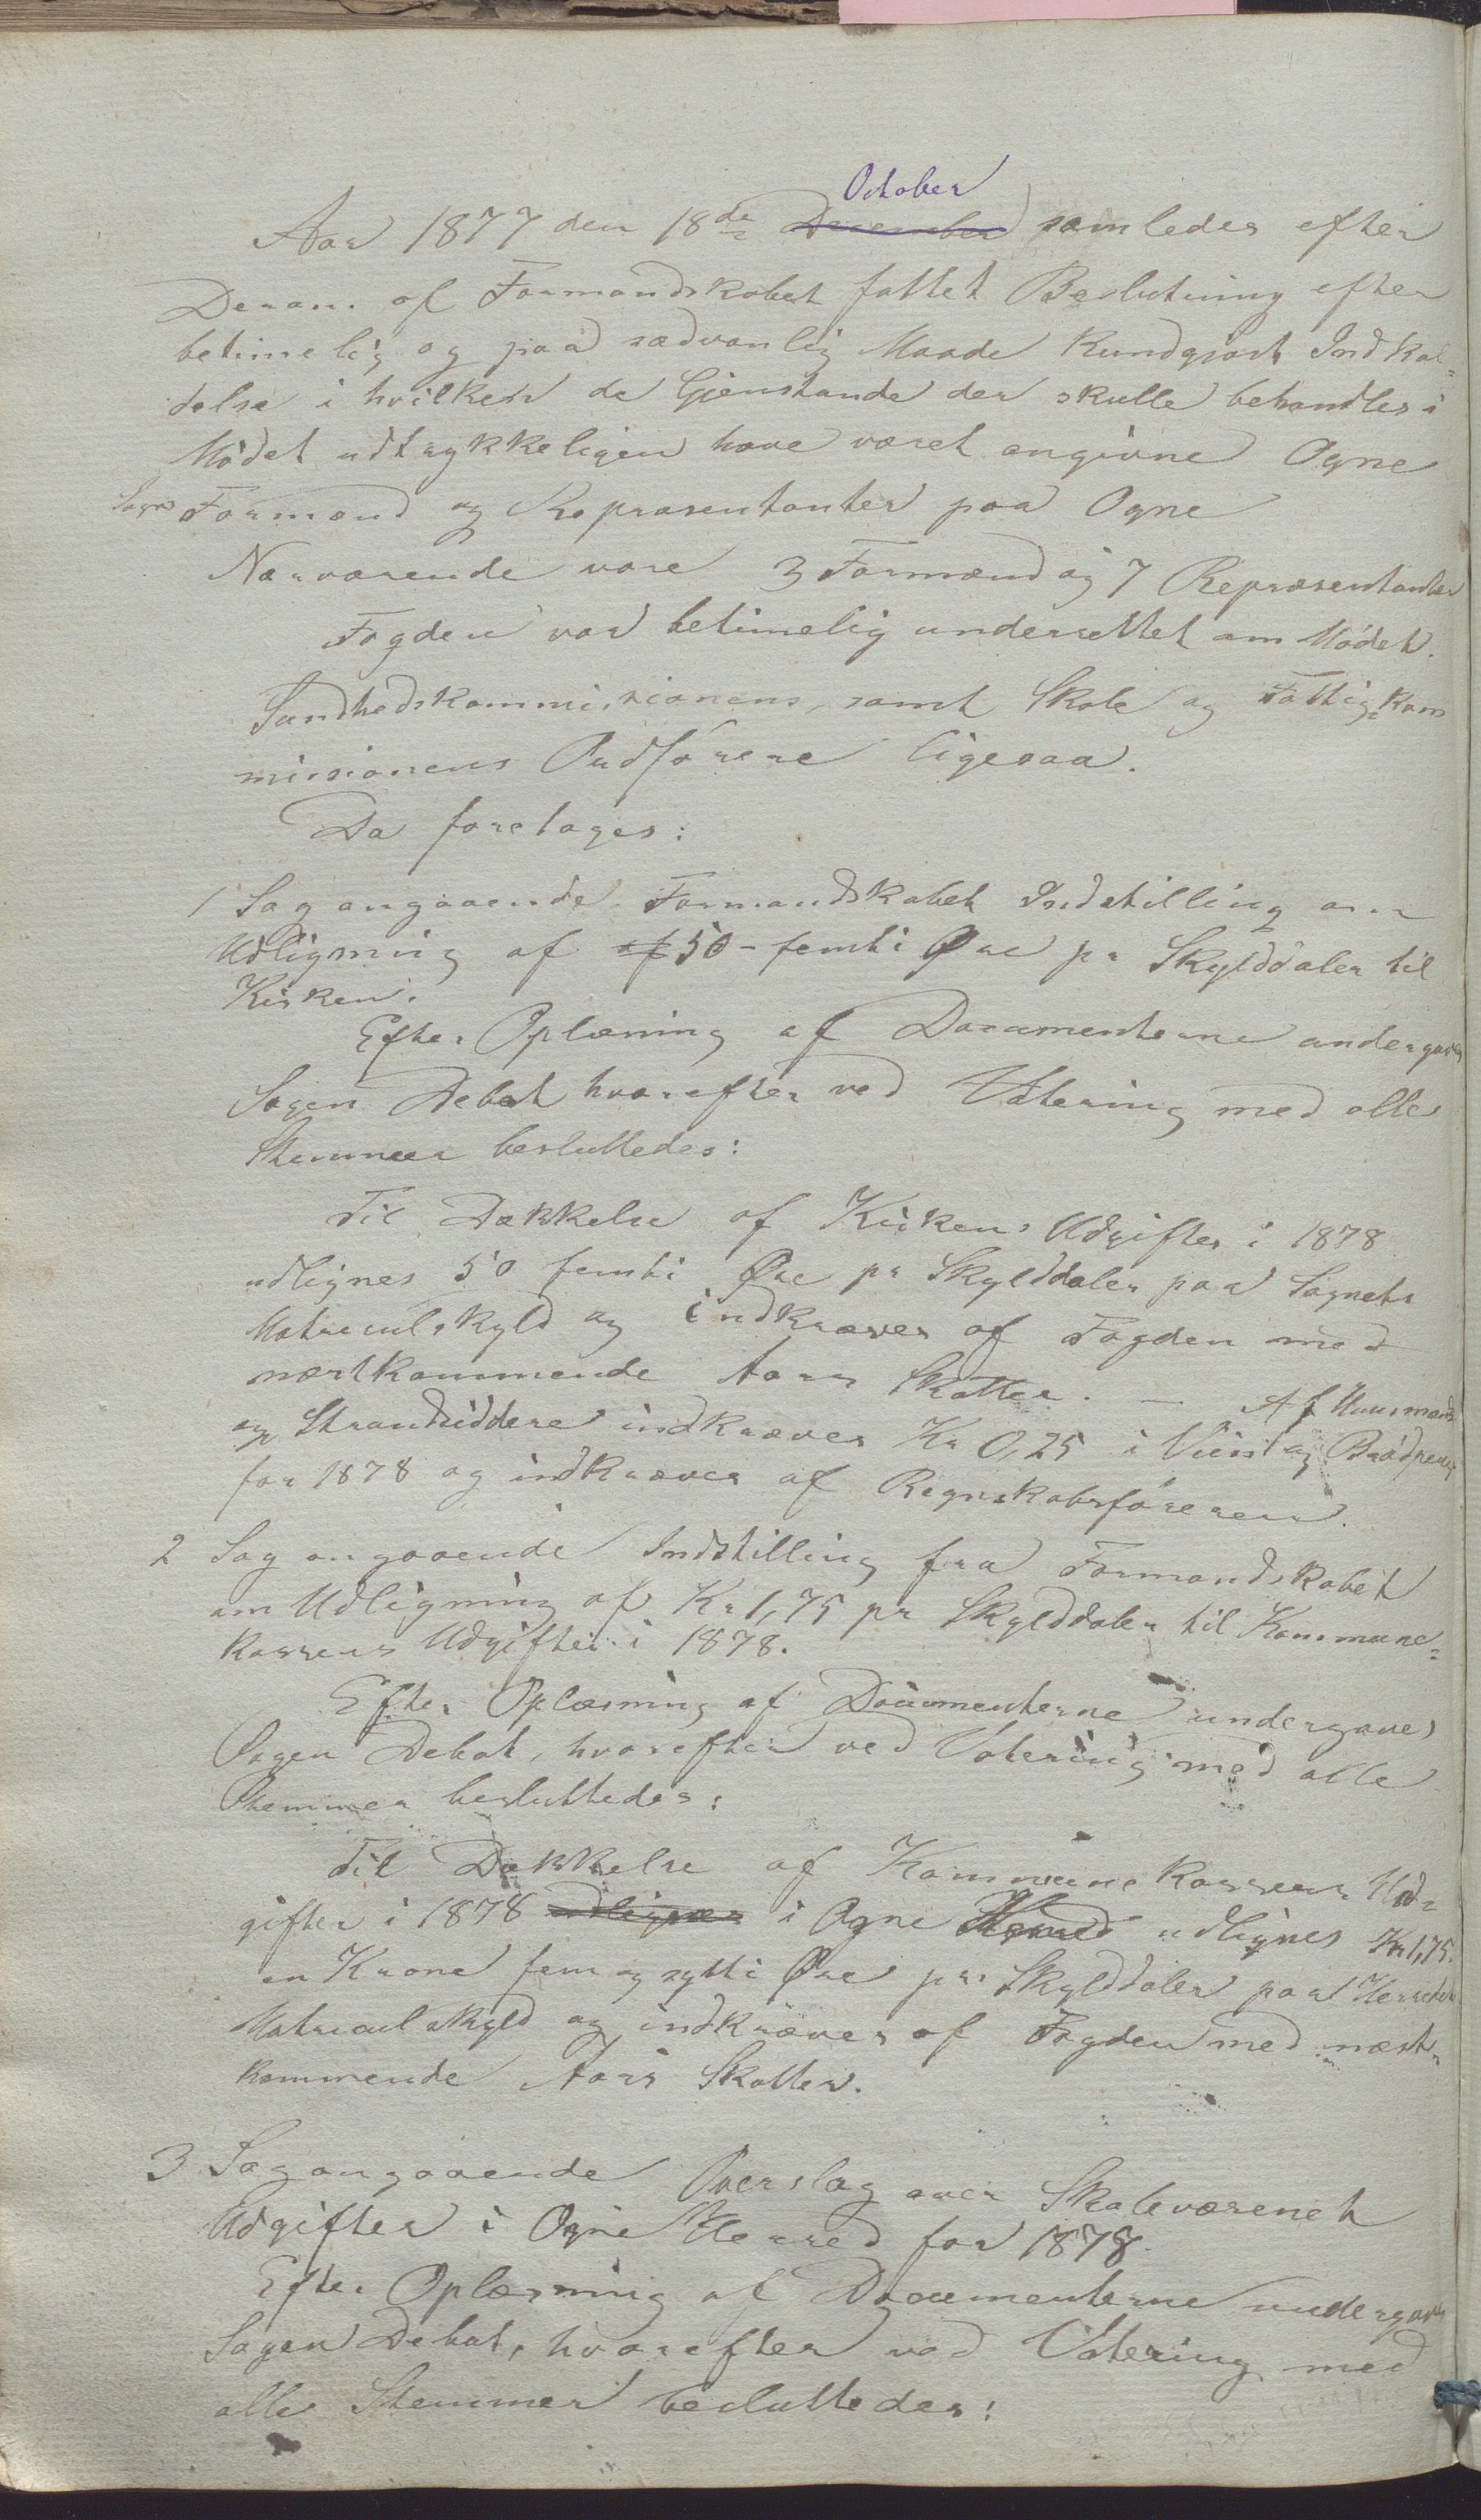 October
Aar 1877 den 18de December samledes efter
Deran. af Formandskabet fattet Beslutning efter
betimelig og paa sædvanlig Maade Kundgjort Indkal=
delse i hvilken de Gjenstande der skulle behandles i
Mødet udtrykkeligen have været angivne Ogne
Sogns Formænd og Repræsentanter paa Ogne
Nærværende vare 3 Formænd og 7 Repræsentanter
Fogden var betimelig underrettet om Mødet.
Sundhedskommissionens, samt Skole og Fattigkom
missionens Ordførere ligesaa.
Da foretages:
1 Sag angaaende Formandskabet Indstilling om
Udligning af af 50 - femti Øre pr Skylddaler til
Kirken.
Efter Oplæsning af Documenterne undergaves
Sagen Debat hvorefter ved Votering med alle
Stemmer besluttedes:
Til Dækkelse af Kirkens Udgifter i 1878
udlignes 50 femti Øre pr Skylddaler paa Sognets
Matriculskyld og indkræves af Fogden med
næstkommende Aars Skatter. — Af Huusmænd
og Strandsiddere indkræves Kr 0,25 i Viin og Brødpenge
for 1878 og indkræves af Regnskabsføreren.
2 Sag angaaende Indstilling fra Formandskabet
om Udligning af Kr 1,75 pr Skylddaler til Kommune=
kassens Udgifter i 1878.
Efter Oplæsning af Documenterne undergaves
Sagen Debat, hvorefter ved Votering med alle
Stemmer besluttedes:
Til Dækkelse af Kommunekassens Ud=
gifter i 1878 udlignes i Ogne Herred udlignes Kr 1,75.
en Krone fem og sytti Øre pr Skylddaler paa Herredets
Matriculskyld og indkræves af Fogden med næst=
kommende Aars Skatter.
3 Sag angaaende Overslag over Skolevæsenet
Udgifter i Ogne Herred for 1878.
Efter Oplæsning af Documenterne undergaves
Sagen Debat, hvorefter ved Votering med
alle Stemmer besluttedes: